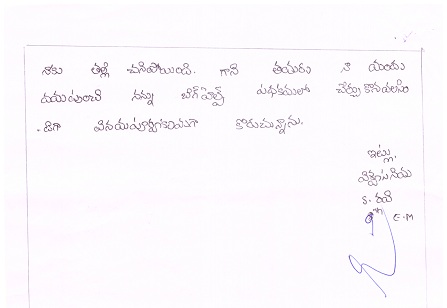 నాకు తల్లి చనిపోయింది. గాని తమరు నా యందు
దయవుంచి నన్ను బిగ్‌హెల్ప్ పథకములో చేర్చుకొనవలసిం
-దిగా వినయపూర్వకముగా కోరుచున్నాను.
ఇట్లు,
విశ్వసనీయ
S. రవి
E.M